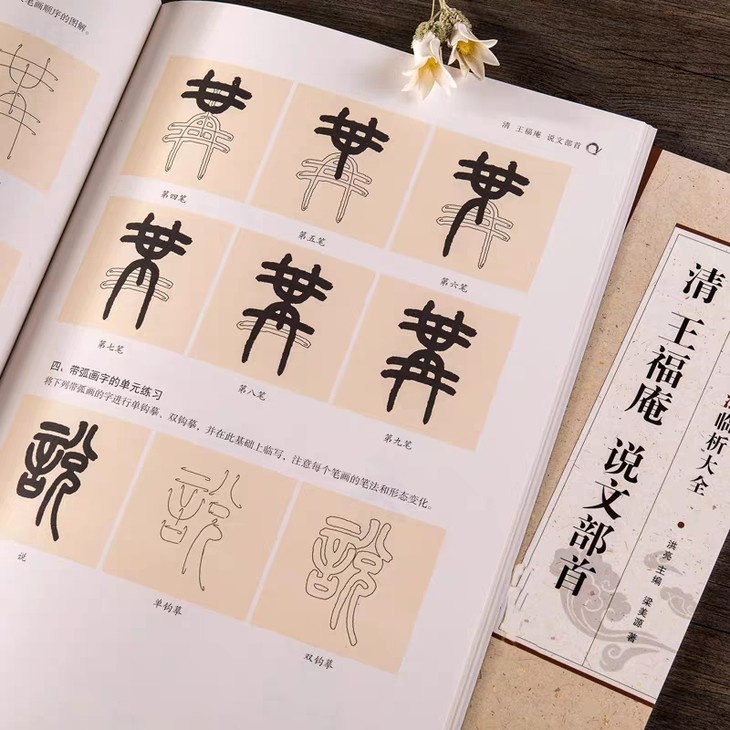 笔画顺序的图解。
清 王福庵 说文部首
第四笔
第五笔
第六笔
第七笔
第八笔
第九笔
四、带弧画字的单元练习
将下列带弧画的字进行单钩摹、双钩摹，并在此基础上临写，注意每个笔画的笔法和形态变化。
説
说
单钩摹
双钩摹
临析大全
清 王福庵 说文部首
洪亮 主编 梁美源 著